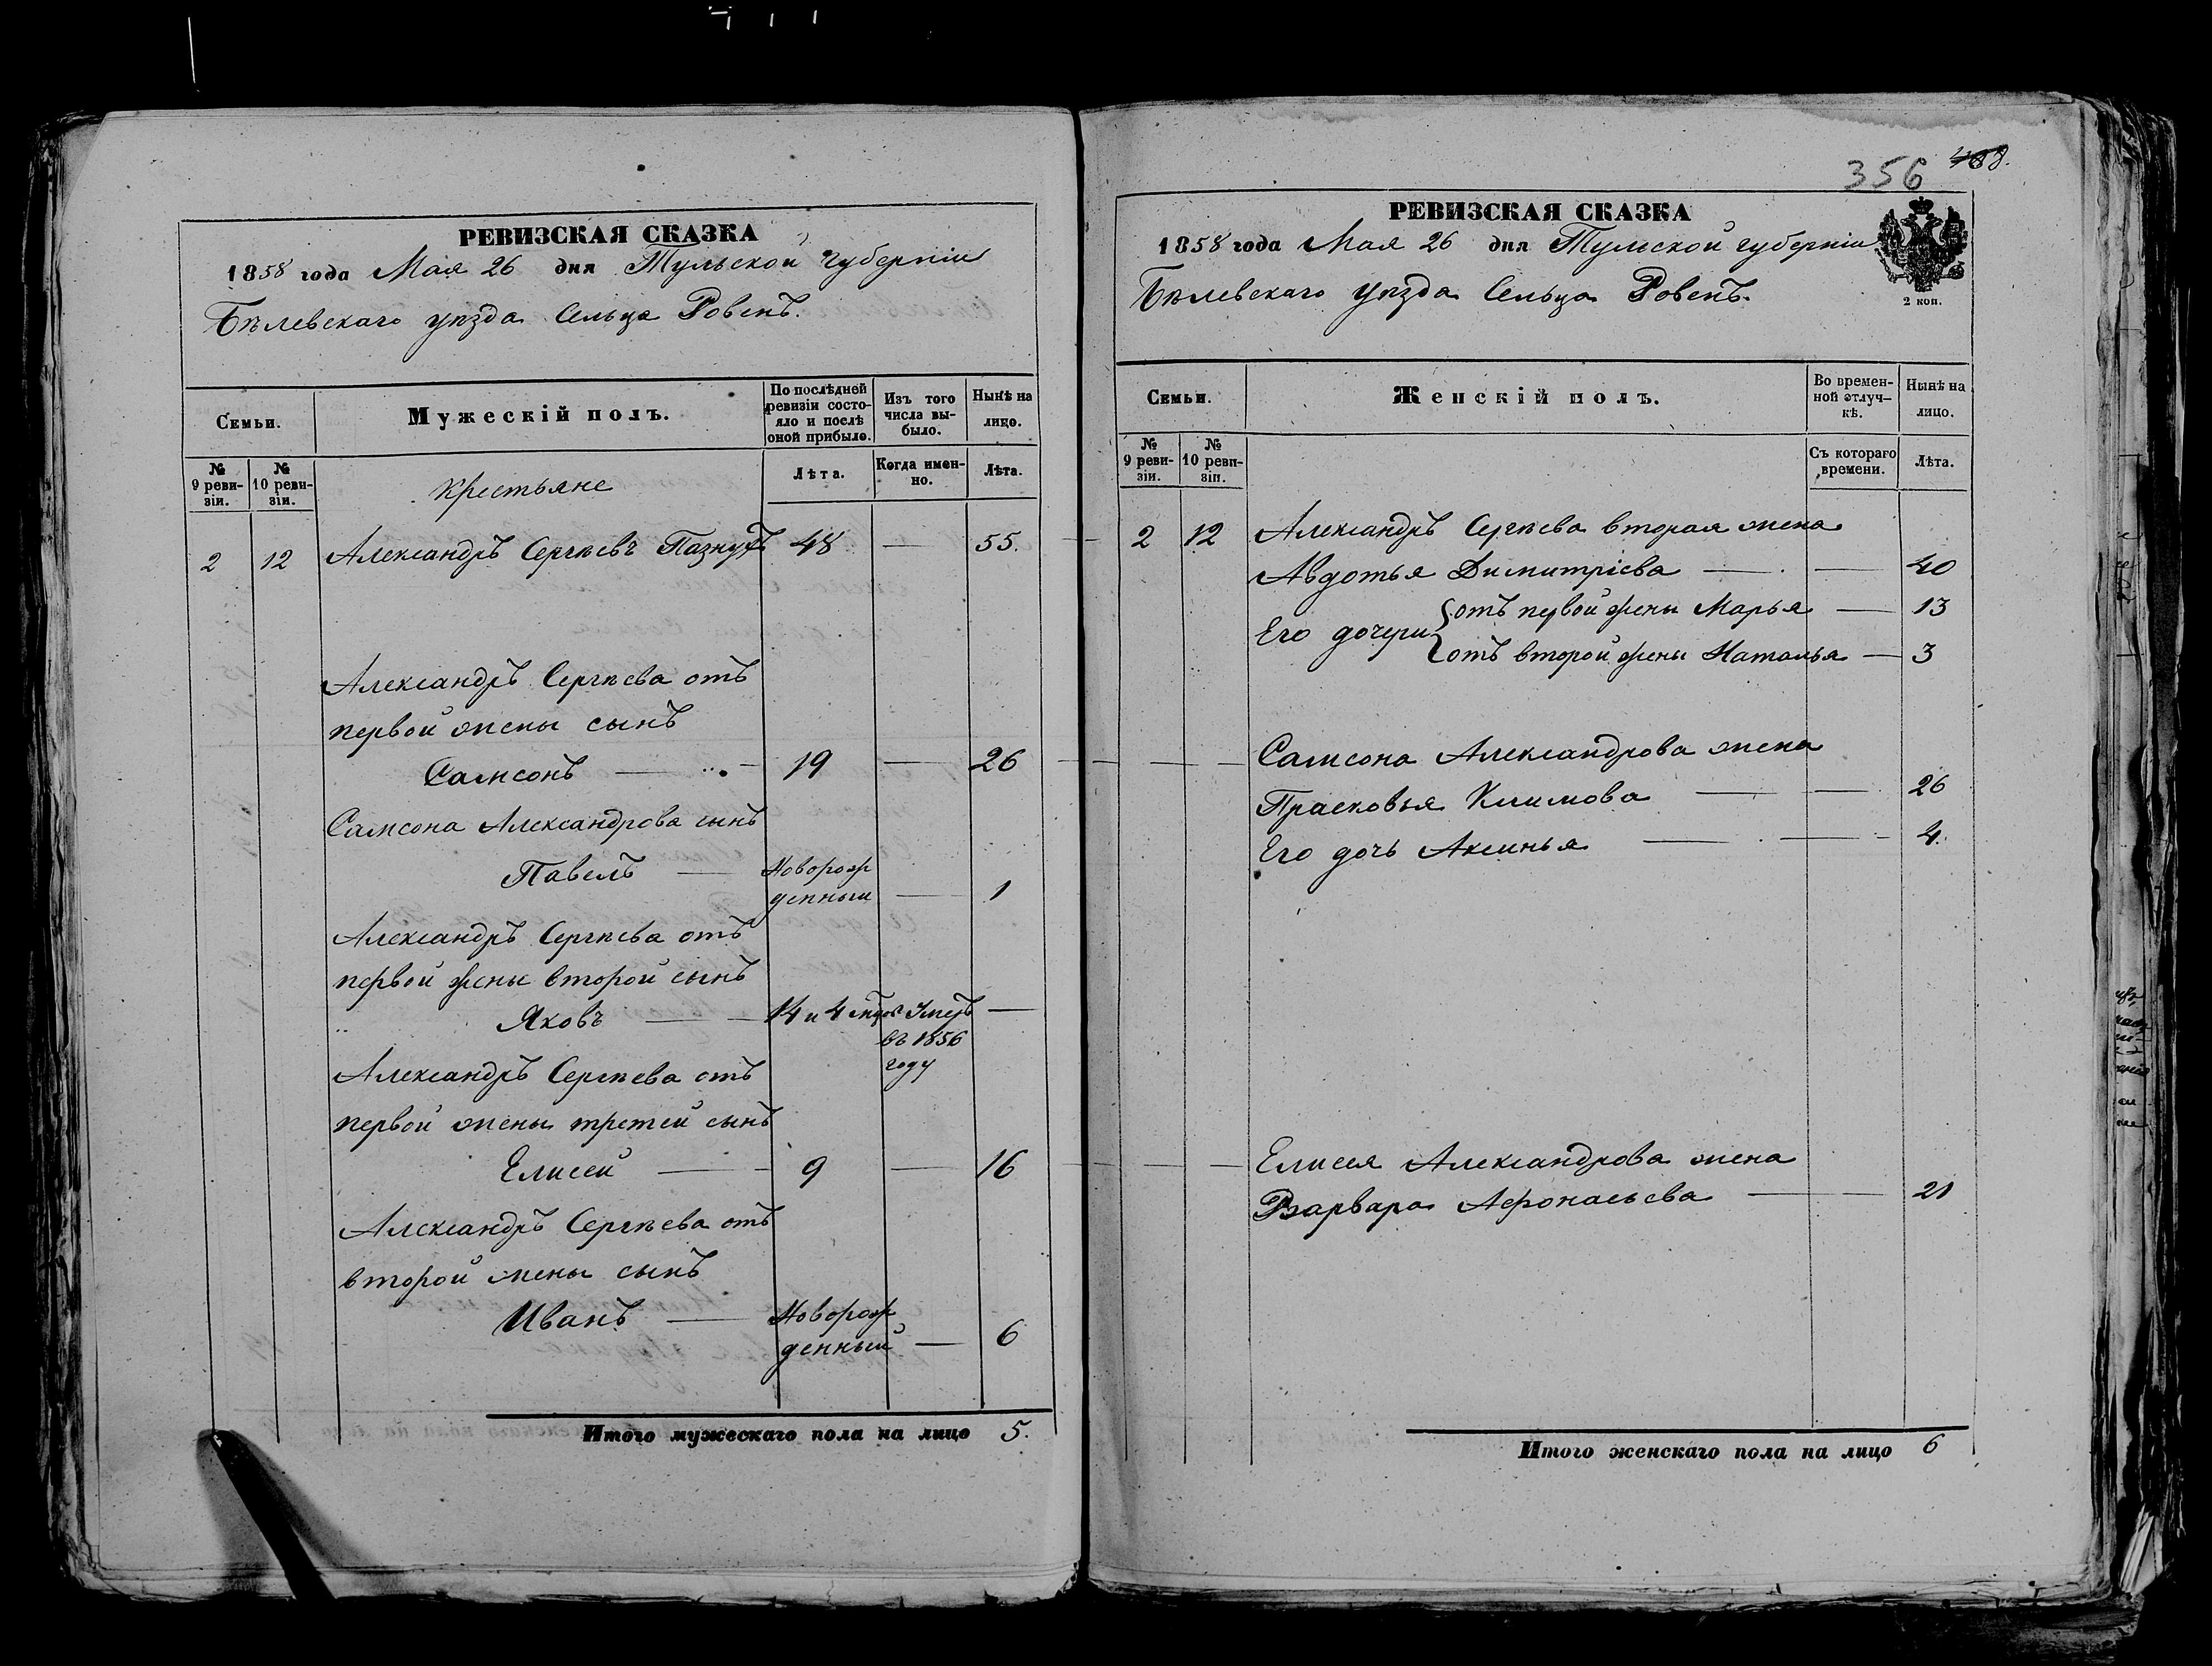 РЕВИЗСКАЯ СКАЗКА
1858 года Мая 26 дня Тульской губерніи
Бѣлевскаго уѣзда Сельца Ровенъ.
Семьи.
Мужескій полъ.
По послѣдней ревизіи состояло и послѣ оной прибыло.
Изъ того числа выбыло.
Нынѣ на лицо.
№ 9 ревизіи.
№ 10 ревизіи.
Крестьяне
Лѣта.
Когда именно.
Лѣта.
2 12 Александръ Сергѣевъ 48 — 55.
Александръ Сергѣева отъ
первой жены сынъ
Самсонъ — 19 — 26
Самсона Александрова сынъ
Павелъ —Новорож
денный — 1
Александръ Сергѣева отъ
первой жены второй сынъ
Яковъ — 14 и 4 Умеръ —
въ 1856
году
Александръ Сергѣева отъ
первой жены третей сынъ
Елисей — 9 — 16
Александръ Сергѣева отъ
второй жены сынъ
Иванъ — Новорож
денный — 6
Итого мужескаго пола на лицо 5.
356 488.
РЕВИЗСКАЯ СКАЗКА
1858 года Мая 26 дня Тульской губерніи
Бѣлевскаго уѣзда Сельца Ровенъ.
2 коп.
Семьи.
Женскій полъ.
Во временной отлучкѣ.
Нынѣ на лицо.
№ 9 ревизіи.
№ 10 ревизіи.
Съ котораго времени.
Лѣта.
2 12 Александръ Сергѣева вторая жена
Авдотья Димитріева — — 40
Его дочери { отъ первой жены Марья — 13
отъ второй жены Наталья — 3
Самсона Александрова жена
Прасковья Климова — — 26
Его дочь Аксинья — — 4.
Елисея Александрова жена
Варвара Афонасьева — — 21
Итого женскаго пола на лицо 6